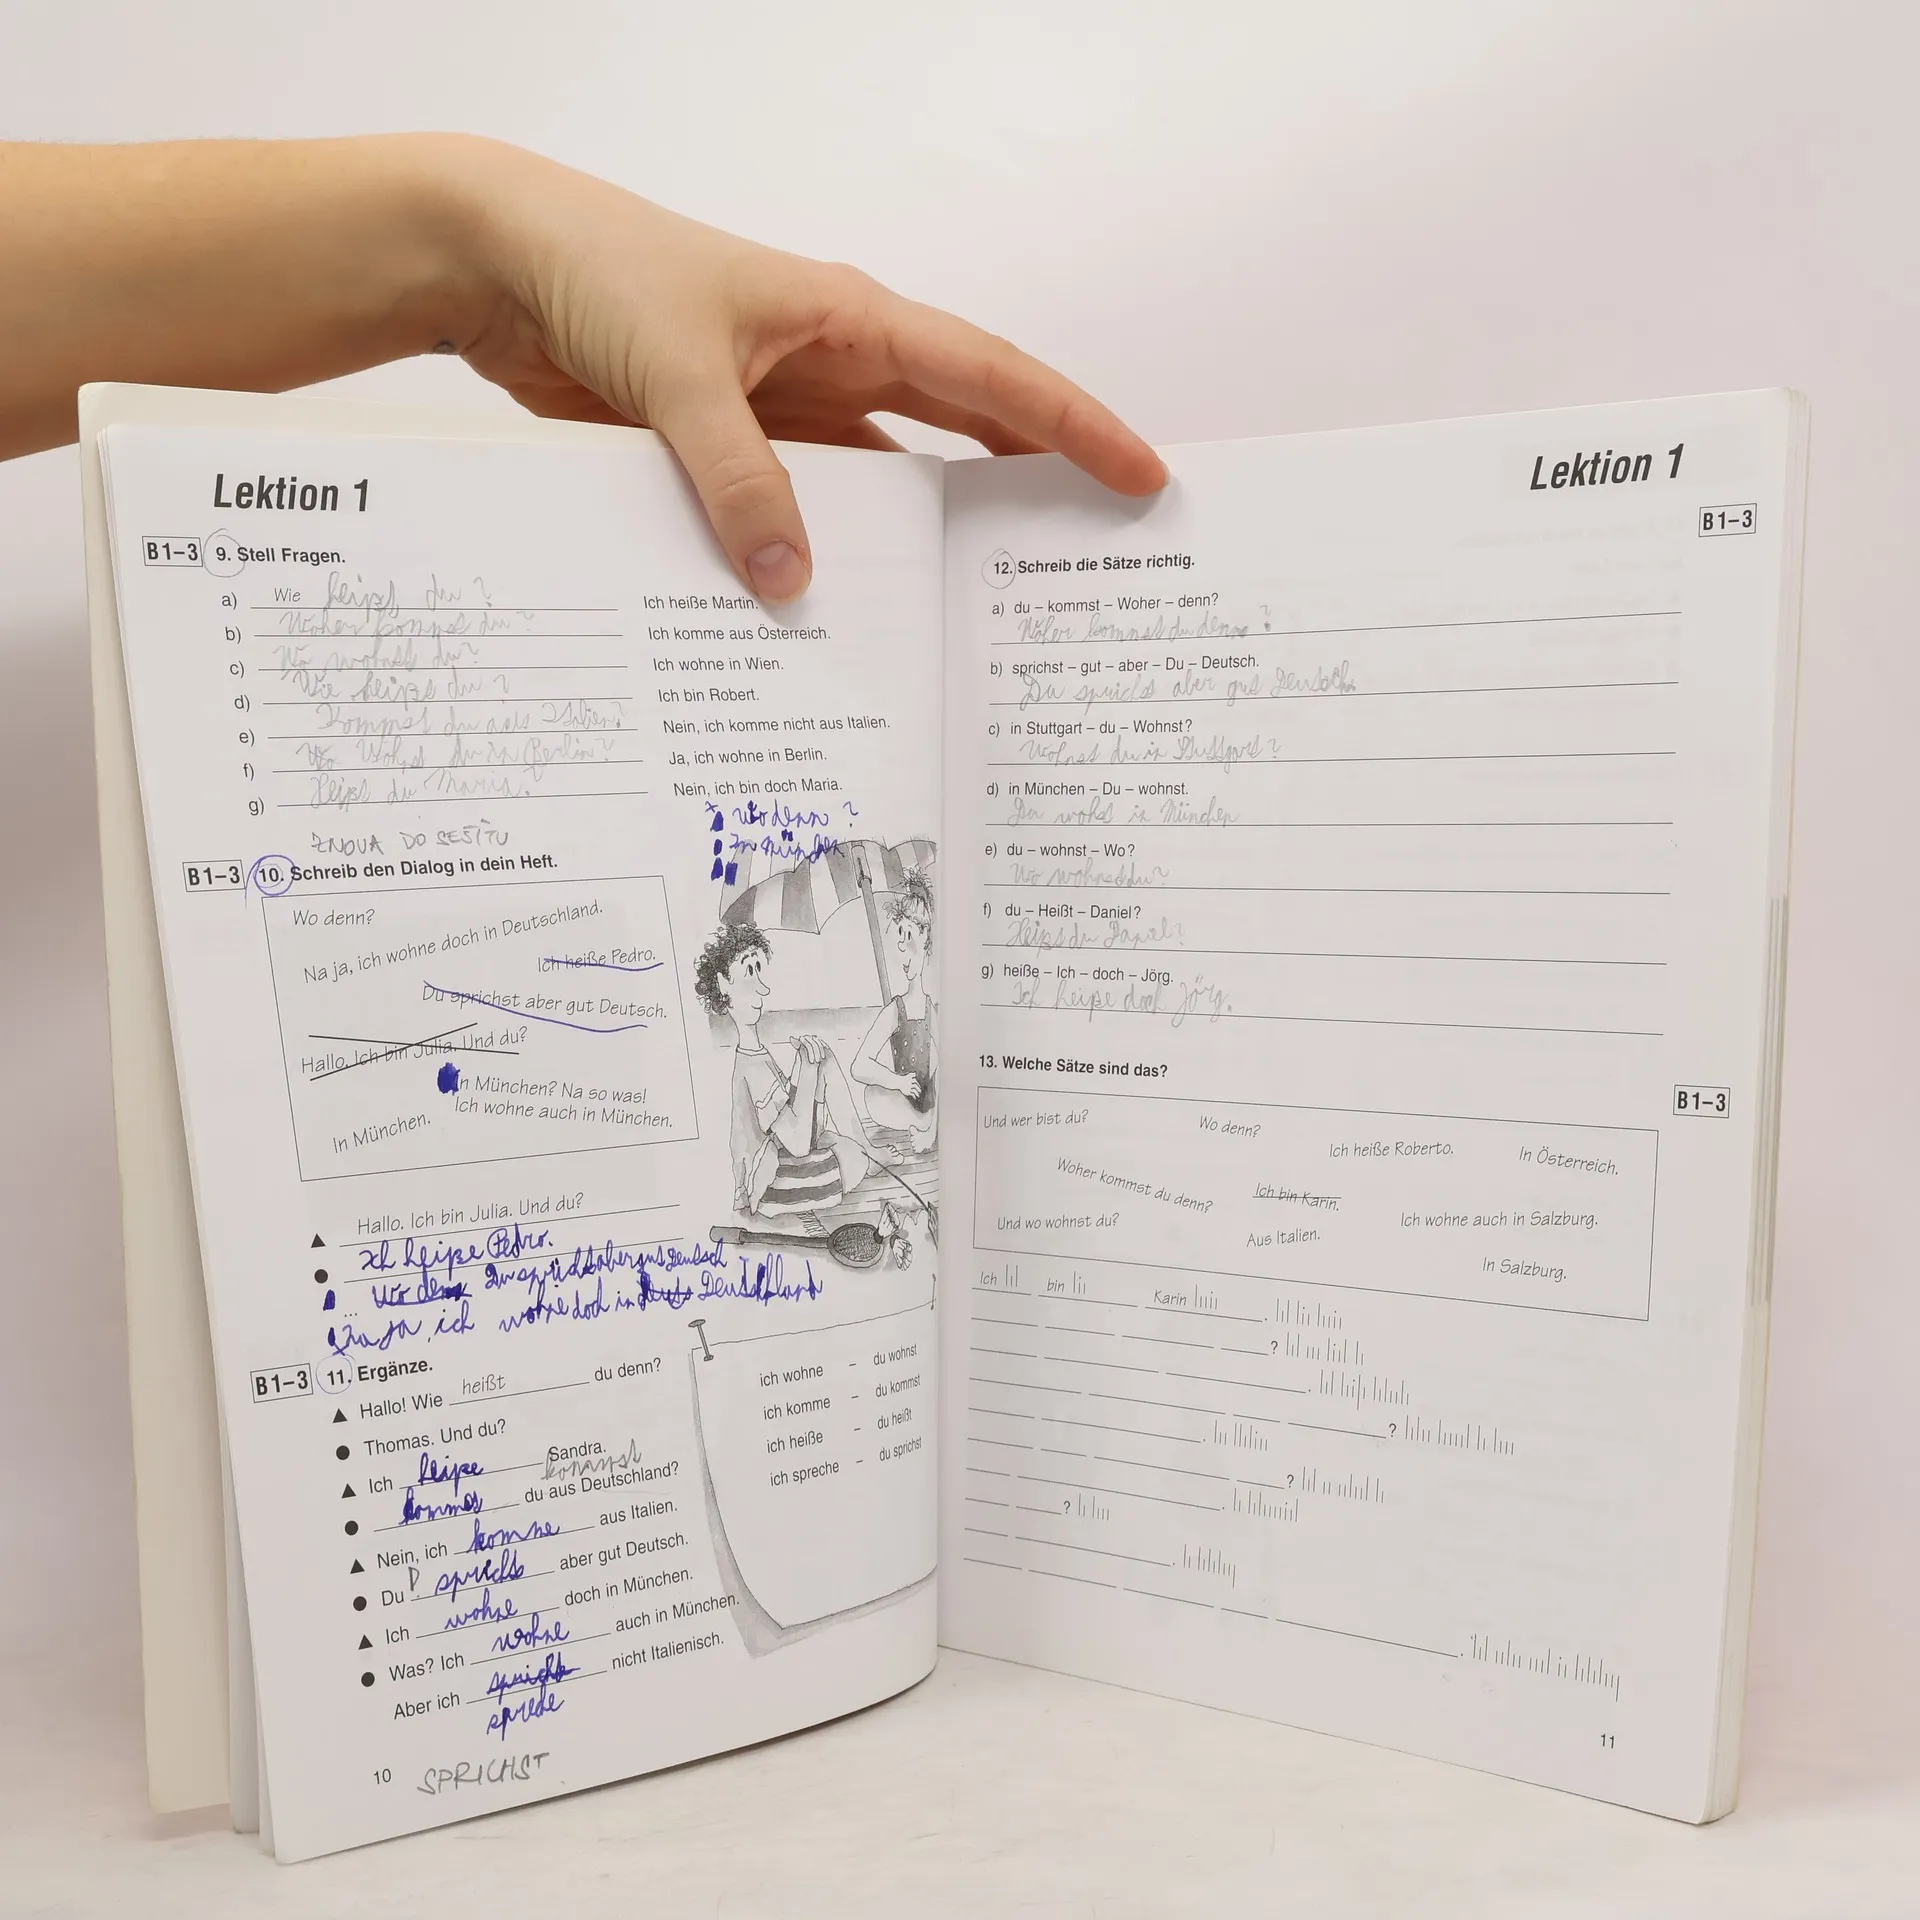 Lektion 1
B1–3
9. Stell Fragen.
a) Wie heißt du? Ich heiße Martin.
b) Woher kommst du? Ich komme aus Österreich.
c) Wo wohnst du? Ich wohne in Wien.
d) Wie heißt du? Ich bin Robert.
e) Kommst du aus Italien? Nein, ich komme nicht aus Italien.
f) Wohnst du in Berlin? Ja, ich wohne in Berlin.
g) Heißt du Maria? Nein, ich bin doch Maria.
Wo denn?
In München
ZNOVA DO SEŠITU
B1–3
10. Schreib den Dialog in dein Heft.
Wo denn?
Na ja, ich wohne doch in Deutschland.
Ich heiße Pedro.
Du sprichst aber gut Deutsch.
Hallo. Ich bin Julia. Und du?
In München? Na so was!
Ich wohne auch in München.
In München.
▲ Hallo. Ich bin Julia. Und du?
● Ich heiße Pedro.
... Wo denn Du sprichst aber gut Deutsch
Na ja, ich wohne doch in Deutschland
B1–3
11. Ergänze.
▲ Hallo! Wie heißt du denn?
● Thomas. Und du?
▲ Ich heiße Sandra.
kommst
● du aus Deutschland?
▲ Nein, ich komme aus Italien.
● Du sprichs aber gut Deutsch.
▲ Ich wohne doch in München.
● Was? Ich wohne auch in München.
Aber ich nicht Italienisch.
ich wohne – du wohnst
ich komme – du kommst
ich heiße – du heißt
ich spreche – du sprichst
10
SPRICHST
Lektion 1
B1–3
12. Schreib die Sätze richtig.
a) du – kommst – Woher – denn?
Woher kommst du denn?
b) sprichst – gut – aber – Du – Deutsch.
Du sprichst aber gut Deutsch.
c) in Stuttgart – du – Wohnst?
Wohnst du in Stuttgart?
d) in München – Du – wohnst.
Du wohst in München
e) du – wohnst – Wo?
Wo wohnst du?
f) du – Heißt – Daniel?
Heißt du Daniel?
g) heiße – Ich – doch – Jörg.
Ich heiße doch Jörg.
13. Welche Sätze sind das?
B1–3
Und wer bist du?
Wo denn?
Ich heiße Roberto.
In Österreich.
Woher kommst du denn?
Ich bin Karin.
Und wo wohnst du?
Aus Italien.
Ich wohne auch in Salzburg.
In Salzburg.
Ich bin Karin
11